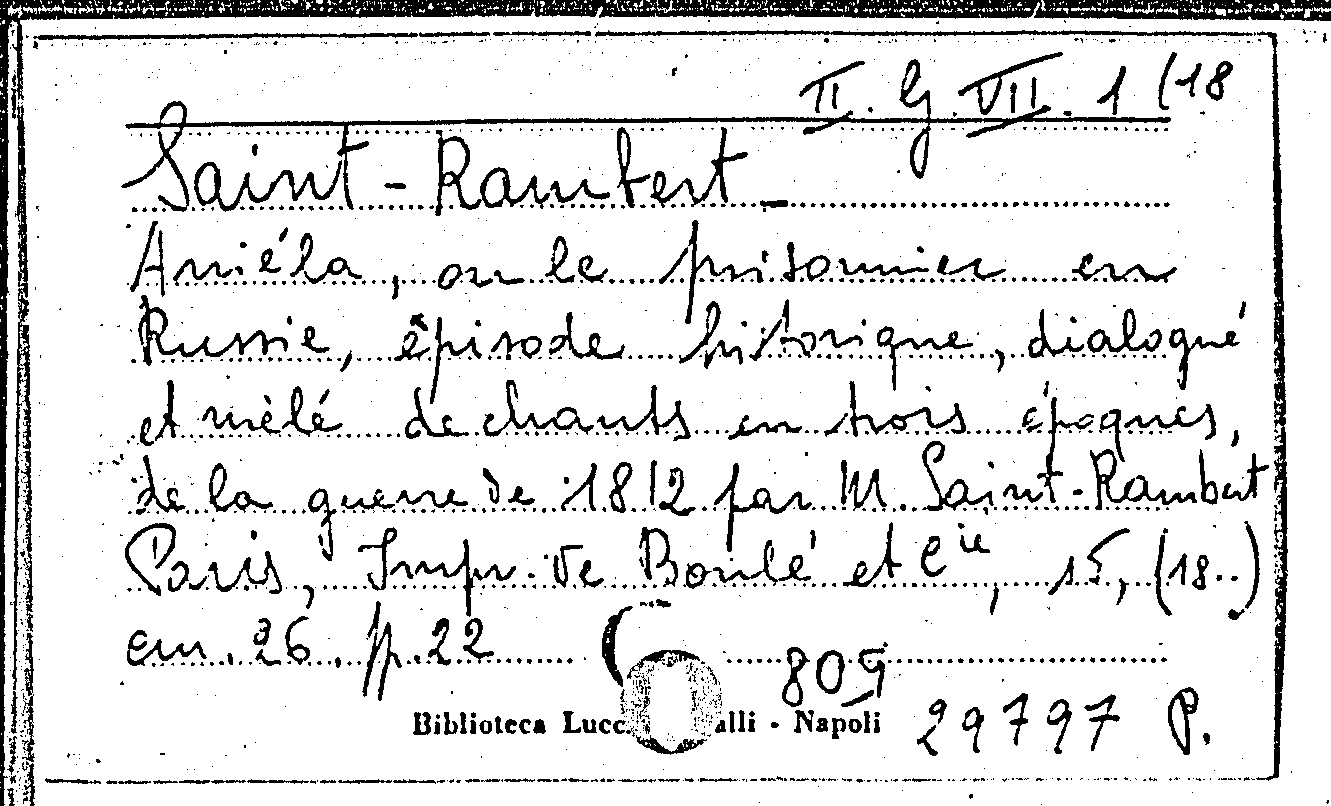 II. G. VII. 1 (18
Saint-Rambert -
Aniéla, ou le prisonnier en
Russie, épisode historique, dialogué
et mêlé de chants en trois époques,
de la guerre de 1812 par M. Saint-Rambert
Paris, Impr. Ve Boulé et Cie, 15, (18..)
cm. 26. pp. 22
809
Biblioteca - Napoli
29797 P.